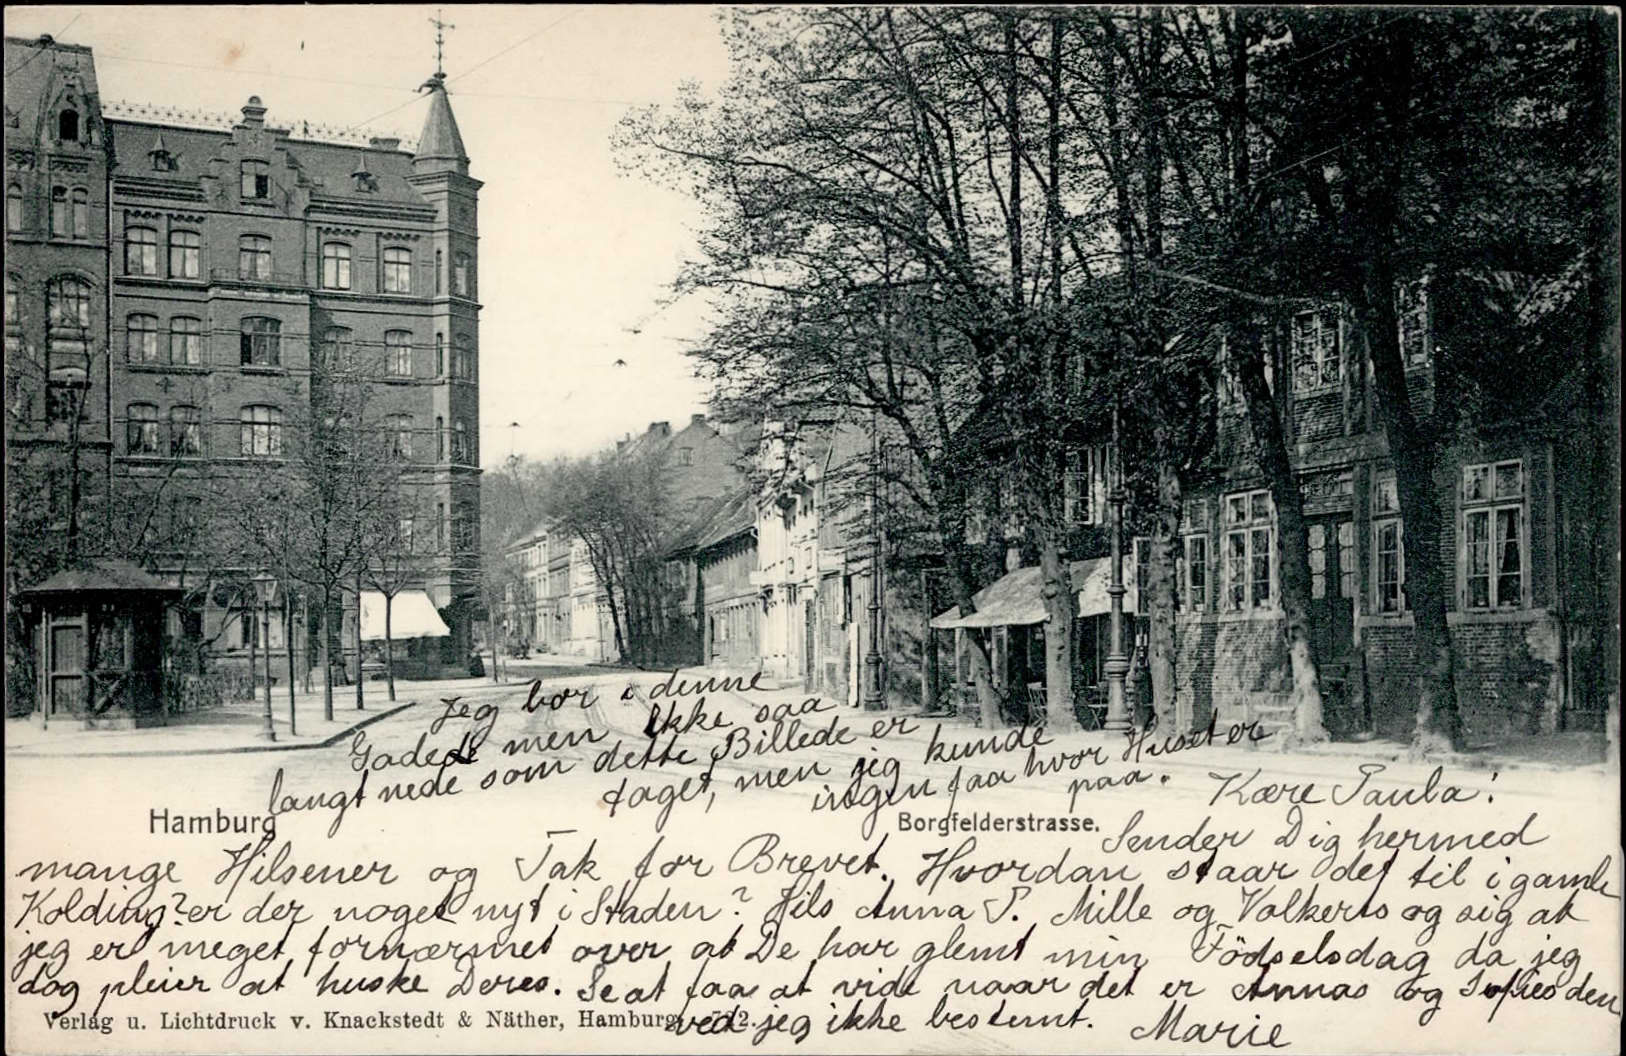 Jeg bor i denne
Gadede men ikke saa
langt nede som dette Billede er
taget, men jeg kunde
ingen faa hvor Huset er
paa.
Hamburg
Borgfelderstrasse.
Kære Paula!
Sender Dig hermed
mange Hilsener og Tak for Brevet. Hvordan staar det til i gamle
Kolding? er der noget nyt i Staden? Hils Anna P. Mille og Volkerts og sig at
jeg er meget fornærmet over at De har glemt min Födselsdag da jeg
dog pleier at huske Deres. Se at faa at vide naar det er Annas og Sofies den
ved jeg ikke bestemt. Marie
Verlag u. Lichtdruck v. Knackstedt & Näther, Hamburg.